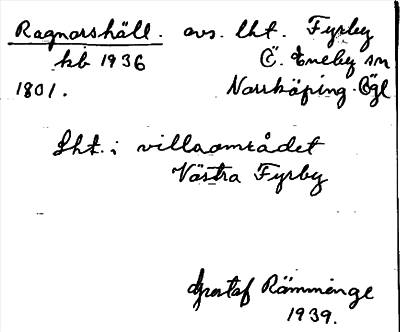 Ragnarshäll. avs. lht. Fyrby
kb 1936 Ö. Eneby sn
1801. Norrköping Ögl
Lht. i villaområdet
Västra Fyrby
Gustaf Rämminge
1939.